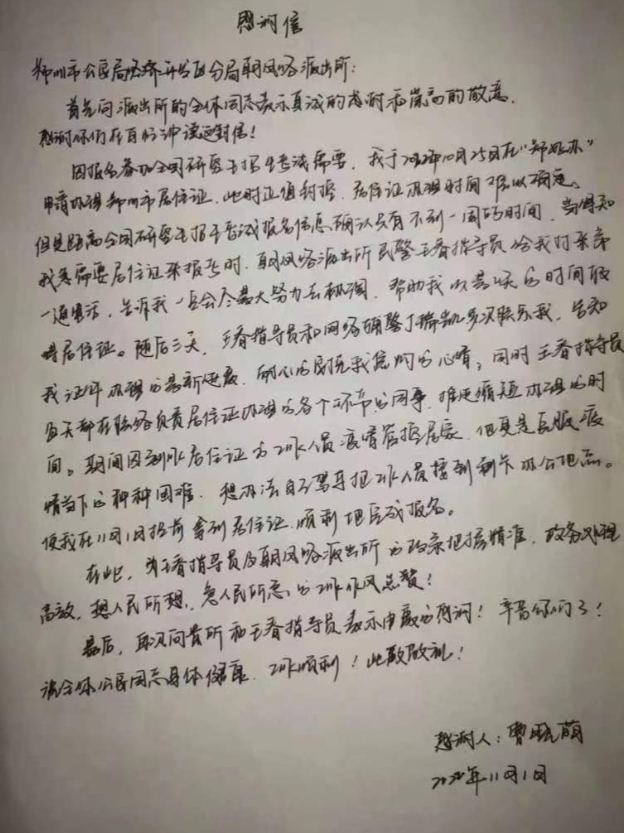 感谢信
郑州市公安局经济开发区分局朝凤路派出所：
首先向派出所的全体同志表示真诚的感谢和崇高的敬意，
感谢你们在百忙中读这封信！
因报名参加全国研究生招生考试需要，我于2022年10月25日在“郑好办”
申请办理郑州市居住证，此时正值封控，居住证办理时间难以确定。
但是距离全国研究生招生考试报名信息确认只有不到一周的时间，当得知
我急需要居住证来报考时，朝凤路派出所民警王春指导员给我打来第
一通电话，告诉我一定会尽最大努力去协调，帮助我以最快的时间取
得居住证。随后三天，王春指导员和网络辅警丁 多次联系我，告知
我证件办理的最新进度，耐心的安抚我急切的心情，同时王春指导员
每天都在联络负责居住证办理的各个环节的同事，推进缩短办理的时
间。期间因制作居住证的工作人员 居家，但更是克服疫
情当下的种种困难，想办法自己驾车把工作人员接到制卡办公地点。
使我在11月1日提前拿到居住证，顺利地完成报名。
在此，为王春指导员及朝凤路派出所的政策把握精准，政务处理
高效，想人民所想，急人民所急的工作作风点赞！
最后，再次向贵所和王春指导员表示由衷的感谢！辛苦你们了！
祝全体公安同志身体健康，工作顺利！此致敬礼！
感谢人：曹 萌
2022年11月1日